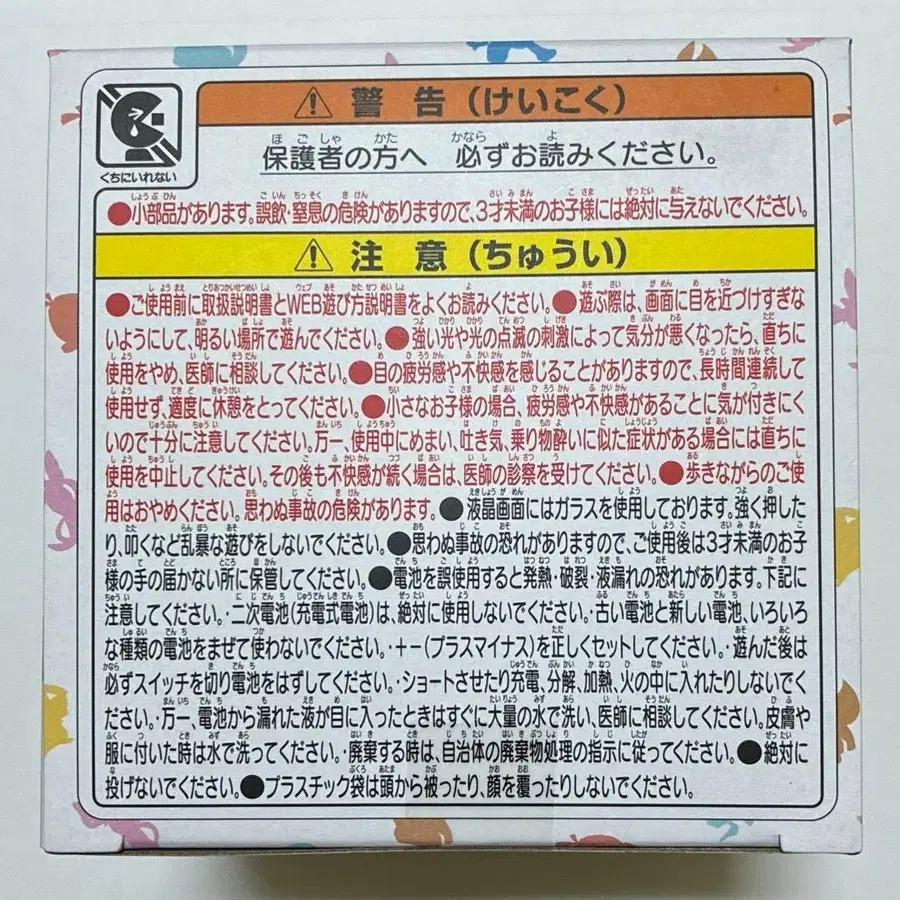 くちにいれない
⚠ 警告(けいこく)
保護者の方へ 必ずお読みください。
●小部品があります。誤飲・窒息の危険がありますので、3才未満のお子様には絶対に与えないでください。
⚠ 注意(ちゅうい)
●ご使用前に取扱説明書とWEB遊び方説明書をよくお読みください。●遊ぶ際は、画面に目を近づけすぎな
いようにして、明るい場所で遊んでください。●強い光や光の点滅の刺激によって気分が悪くなったら、直ちに
使用をやめ、医師に相談してください。●目の疲労感や不快感を感じることがありますので、長時間連続して
使用せず、適度に休憩をとってください。●小さなお子様の場合、疲労感や不快感があることに気が付きにく
いので十分に注意してください。万一、使用中にめまい、吐き気、乗り物酔いに似た症状がある場合には直ちに
使用を中止してください。その後も不快感が続く場合は、医師の診察を受けてください。●歩きながらのご使
用はおやめください。思わぬ事故の危険があります。●液晶画面にはガラスを使用しております。強く押した
り、叩くなど乱暴な遊びをしないでください。●思わぬ事故の恐れがありますので、ご使用後は3才未満のお子
様の手の届かない所に保管してください。●電池を誤使用すると発熱・破裂・液漏れの恐れがあります。下記に
注意してください。・二次電池(充電式電池)は、絶対に使用しないでください。・古い電池と新しい電池、いろいろ
な種類の電池をまぜて使わないでください。・+−(プラスマイナス)を正しくセットしてください。・遊んだ後は
必ずスイッチを切り電池をはずしてください。・ショートさせたり充電、分解、加熱、火の中に入れたりしないでく
ださい。・万一、電池から漏れた液が目に入ったときはすぐに大量の水で洗い、医師に相談してください。皮膚や
服に付いた時は水で洗ってください。・廃棄する時は、自治体の廃棄物処理の指示に従ってください。●絶対に
投げないでください。●プラスチック袋は頭から被ったり、顔を覆ったりしないでください。